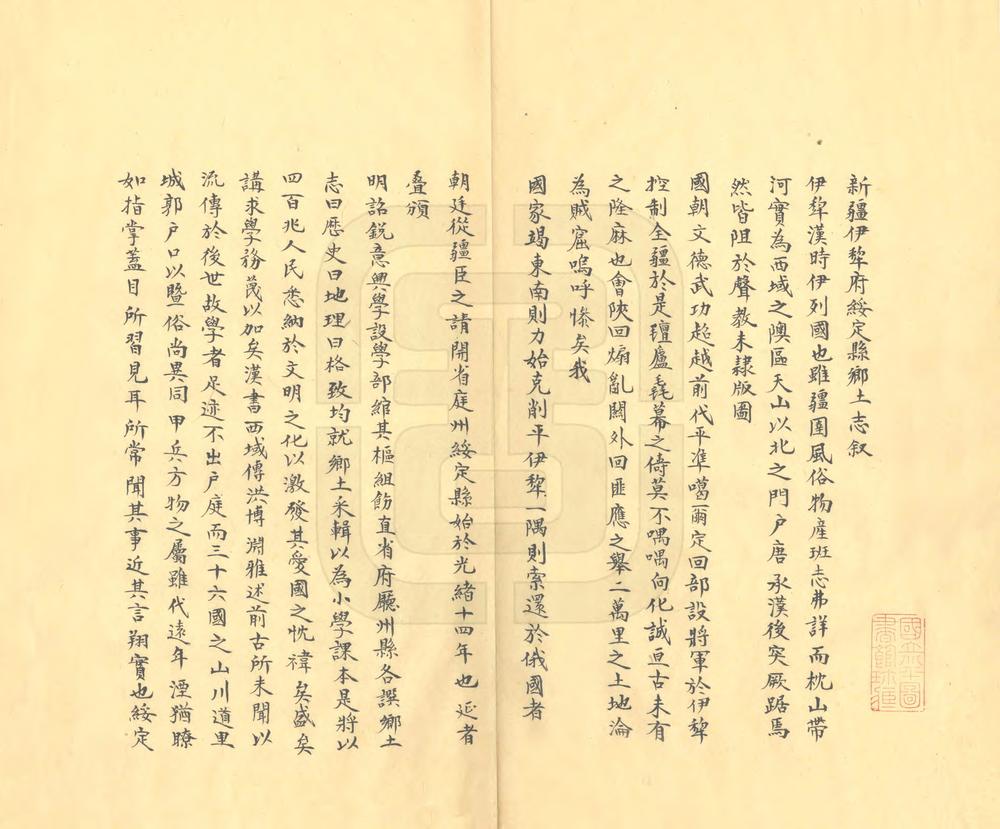 新疆伊犂府綏定縣鄉土志叙
伊犂漢時伊列國也雖疆圉風俗物產班志弗詳而枕山帶
河實為西域之隩區天山以北之門戶唐承漢後突厥踞焉
然皆阻於聲教未隸版圖
國朝文德武功超越前代平準噶爾定回部設將軍於伊犂
控制全疆於是氊廬毳幕之倚莫不喁喁向化誠亘古未有
之隆庥也會陝回煽亂關外回匪應之舉二萬里之土地淪
為賊窟嗚呼慘矣我
國家竭東南則力始克削平伊犂一隅則索還於俄國者
朝廷從疆臣之請開省庭州綏定縣始於光緒十四年也延者
疊頒
明詔銳意興學設學部綰其樞組飭直省府廳州縣各譔鄉土
志曰歷史曰地理曰格致均就鄉土采輯以為小學課本是將以
四百兆人民悉納於文明之化以激發其愛國之忱禕矣盛矣
講求學務蔑以加矣漢書西域傳洪博淵雅述前古所未聞以
流傳於後世故學者足迹不出戶庭而三十六國之山川道里
城郭戶口以暨俗尚異同甲兵方物之屬雖代遠年湮猶瞭
如指掌蓋目所習見耳所常聞其事近其言翔實也綏定